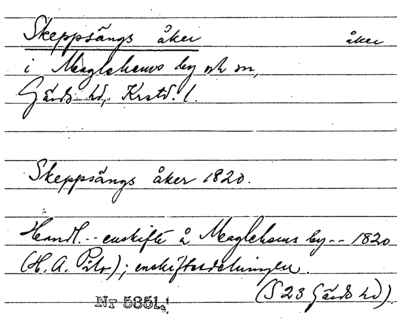 Skeppsängs åker åker
i Maglehems by och sn,
Gärds hd, Krstd. l.
Skeppsängs åker 1820.
Handl... enskifte å Maglehems by -- 1820
(H. A. Pihr); enskiftesdelningen.
(§ 23 Gärds hd)
Nr 5351